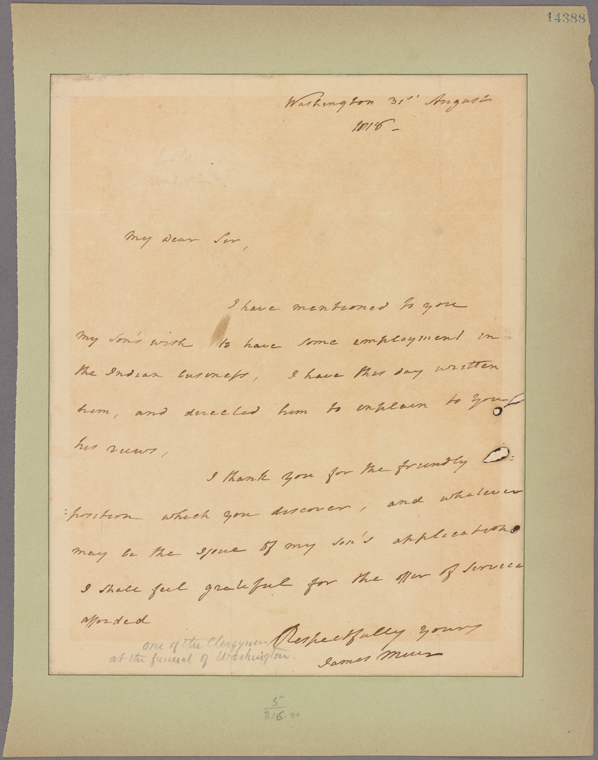 14388
Washington 31st August
1818 -
My Dear Sir,
I have mentioned to you
my son's wish to have some employment in
the Indian business, I have this day written
him, and directed him to explain to you
his views,
I thank you for the friendly
:position which you discover, and whatever
may be the issue of my son's application
I shall feel grateful for the offer of service
afforded
Respectfully yours
James Muir
one of the Clergymen
at the funeral of Washington.
5